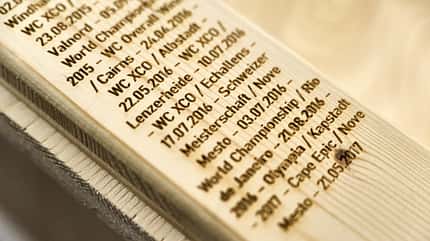 23.08.2015
Valnord - 03.0
World Championship
2015 - WC Overall
/ Cairns - 24.04.2016
WC XCO / Albstadt -
22.05.2016 - WC XCO /
Lenzerheide - 10.07.2016
- WC XCO / Echallens -
17.07.2016 - Schweizer
Meisterschaft / Nove
Mesto - 03.07.2016 -
World Championship / Rio
de Janeiro - 21.08.2016 -
2016 - Olympia / Kapstadt
- 2017 - Cape Epic / Nove
Mesto - 21.05.2017